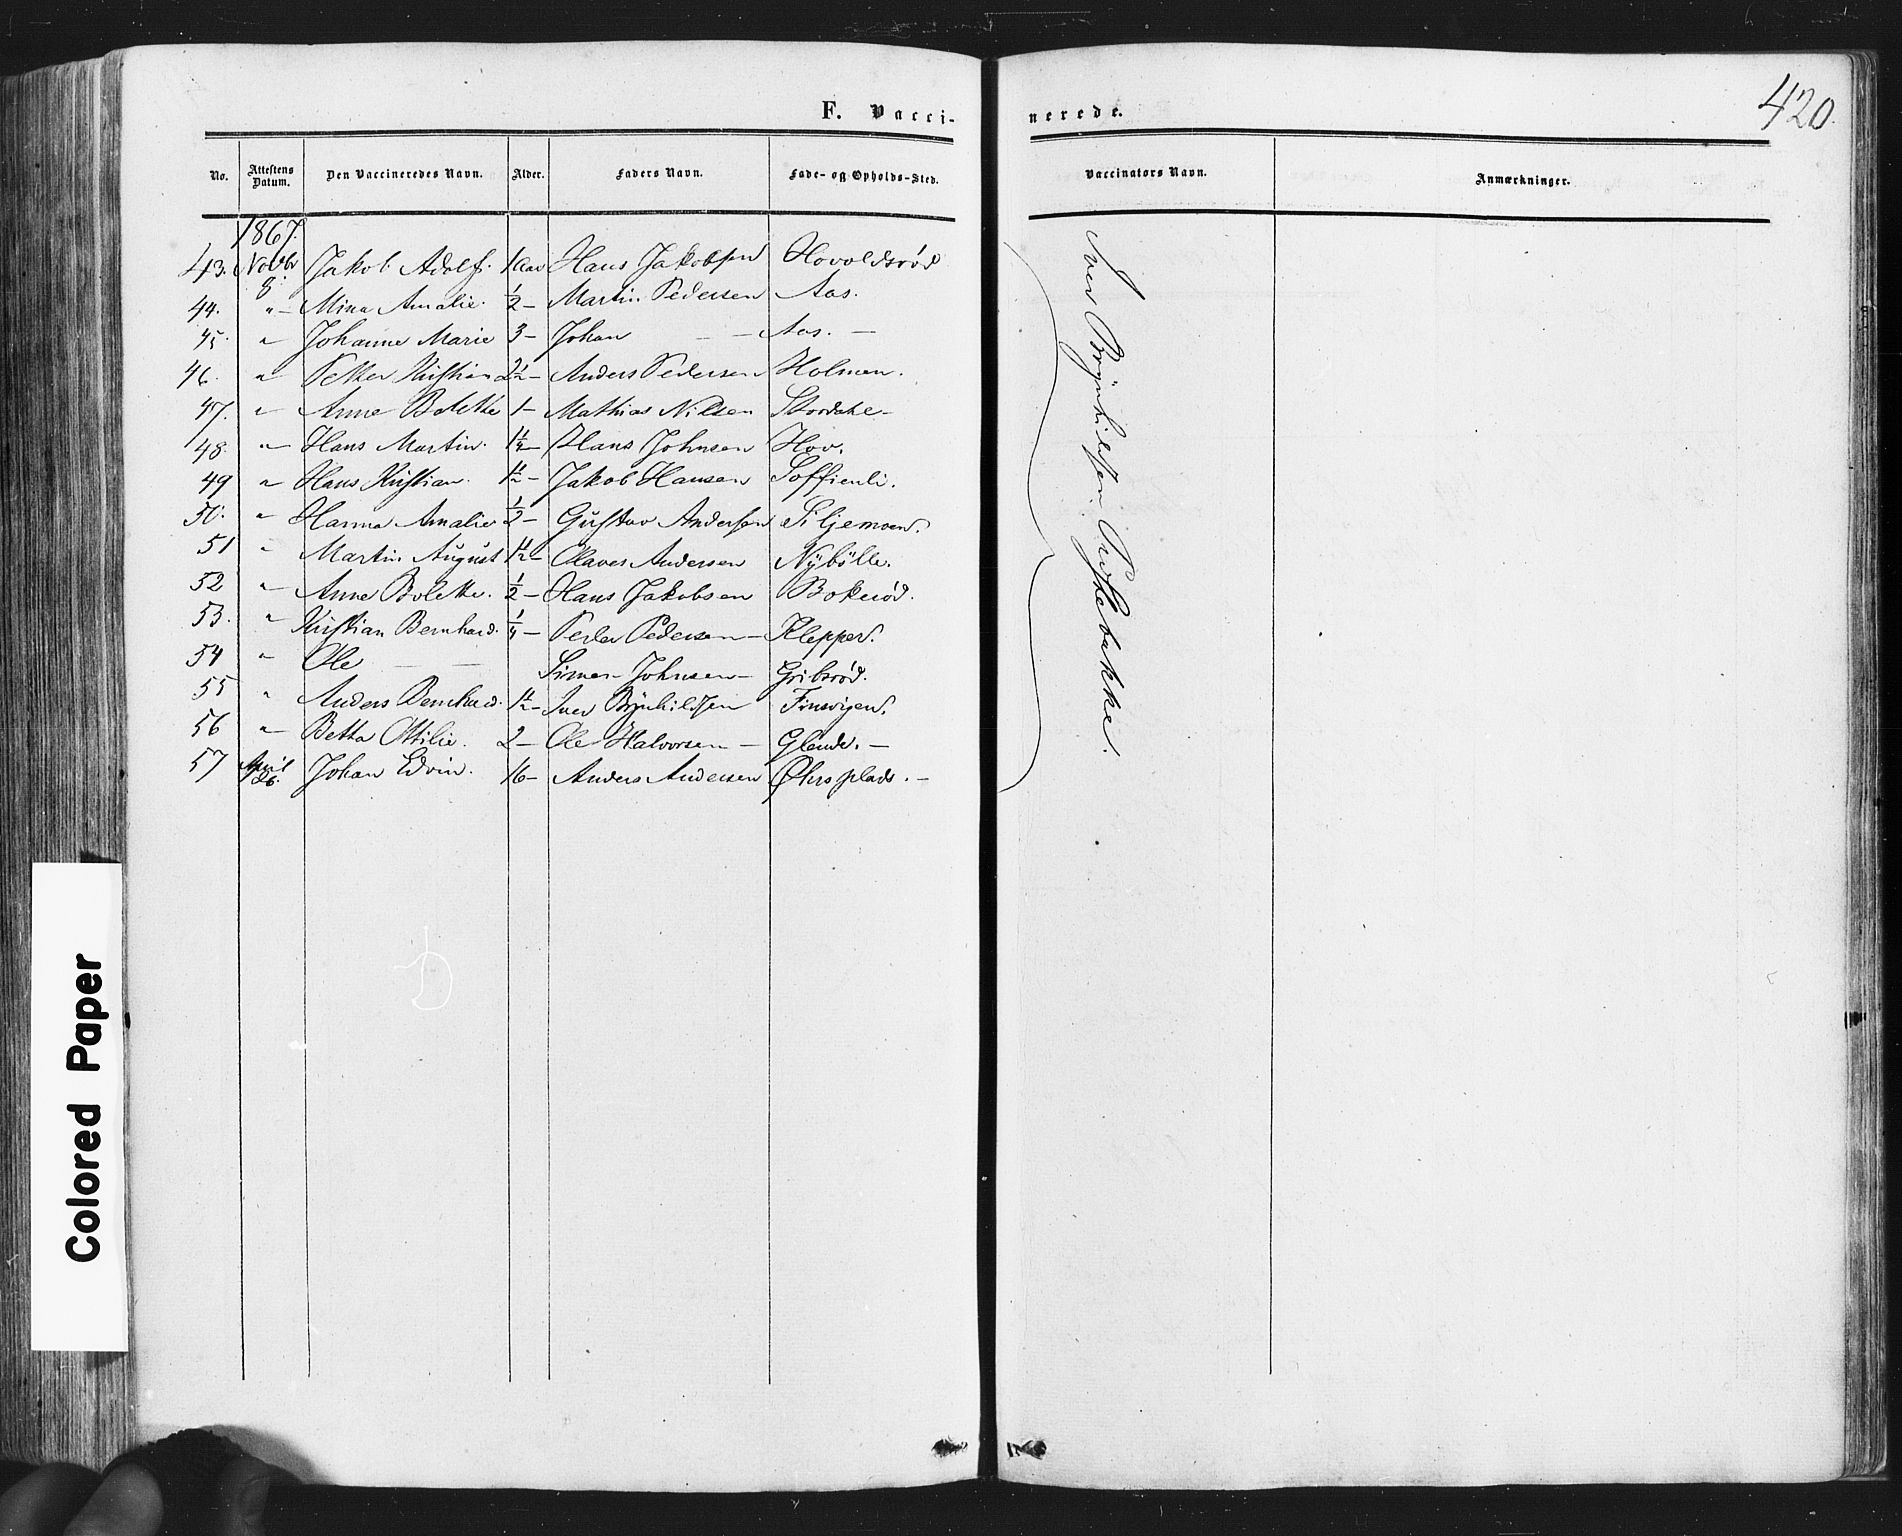 F. Vacci-
nerede.
420
No. Attestens Datum. Den Vaccineredes Navn. Alder. Faders Navn. Føde- og Opholds-Sted. Vaccinators Navn. Anmærkninger.
1867.
43. Novbr 8. Jakob Adolf. 1 Aar Hans Jakobsen Hovoldsrød
44. " – Mina Amalie. ½ – Martin Pedersen Aas.
45. " Johanne Marie 3 – Johan — — Aas. —
46. " Petter Kristian 2½ – Anders Pedersen Holmen.
47. " Anne Bolette 1 – Mathias Nilsen
48. " Hans Martin. 1¼ – Hans Johnsen Hov.
49 " Hans Kristian. 1½ – Jakob Hansen Soffienli.
50. " Hanna Amalie ½ – Gustav Andersen Siljemoen.
51 " Martin August 1½ – Olaves Andersen Nÿbölle.
52 " Anne Bolette. ½ – Hans Jakobsen Bokerød.
53. " Kristian Bernhard. ¼ – Peder Pedersen – Klepper.
54 " Ole — — Simen Johnsen – Gribsrød.
55 " Anders Bernhard. 1½ – Iver Bynhildsen
56 " Betha Ottilie. 2 – Ole Halvorsen – Glende. –
57 April 26. Johan Edvin. 16 – Anders Andersen Øhrsplads. –
Iver Brynhildsen Præstebakke.
Colored Paper